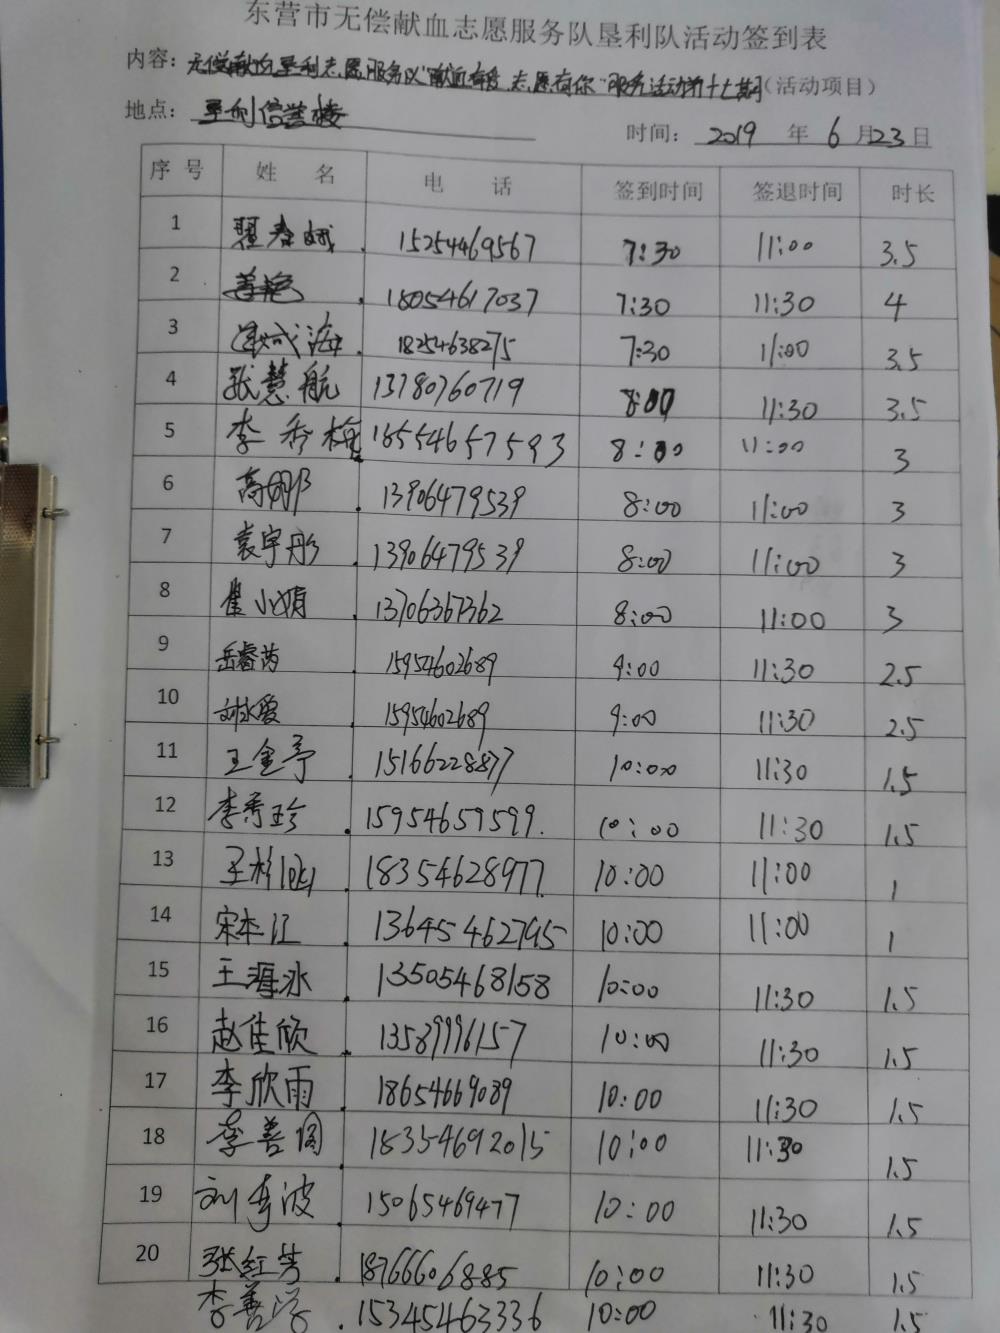 东营市无偿献血志愿服务队垦利队活动签到表
内容：无偿献血垦利志愿服务队"献血有我 志愿有你"服务活动第十七期（活动项目）
地点：垦利信誉楼
时间：2019年6月23日
序号 姓名 电话 签到时间 签退时间 时长
1 翟春娥 15254469567 7:30 11:00 3.5
2 18054617037 7:30 11:30 4
3 成海 18254638275 7:30 11:00 3.5
4 张慧航 13780760719 8:00 11:30 3.5
5 李秀梅 18554657593 8:00 11:00 3
6 高娜 13906479539 8:00 11:00 3
7 袁宇彤 13906479539 8:00 11:00 3
8 崔小娟 13706367362 8:00 11:00 3
9 岳睿芮 15954602689 9:00 11:30 2.5
10 刘永爱 15954602689 9:00 11:30 2.5
11 王金亭 15166228877 10:00 11:30 1.5
12 李秀珍 15954659599 10:00 11:30 1.5
13 王杉 18354628977 10:00 11:00 1
14 宋本江 13645462795 10:00 11:00 1
15 王海冰 13505468158 10:00 11:30 1.5
16 赵佳欣 13589996157 10:00 11:30 1.5
17 李欣雨 18654669089 10:00 11:30 1.5
18 李善阁 18354692015 10:00 11:30 1.5
19 刘秀波 15065469477 10:00 11:30 1.5
20 张红芳 18766606885 10:00 11:30 1.5
李善学 15345463336 10:00 11:30 1.5